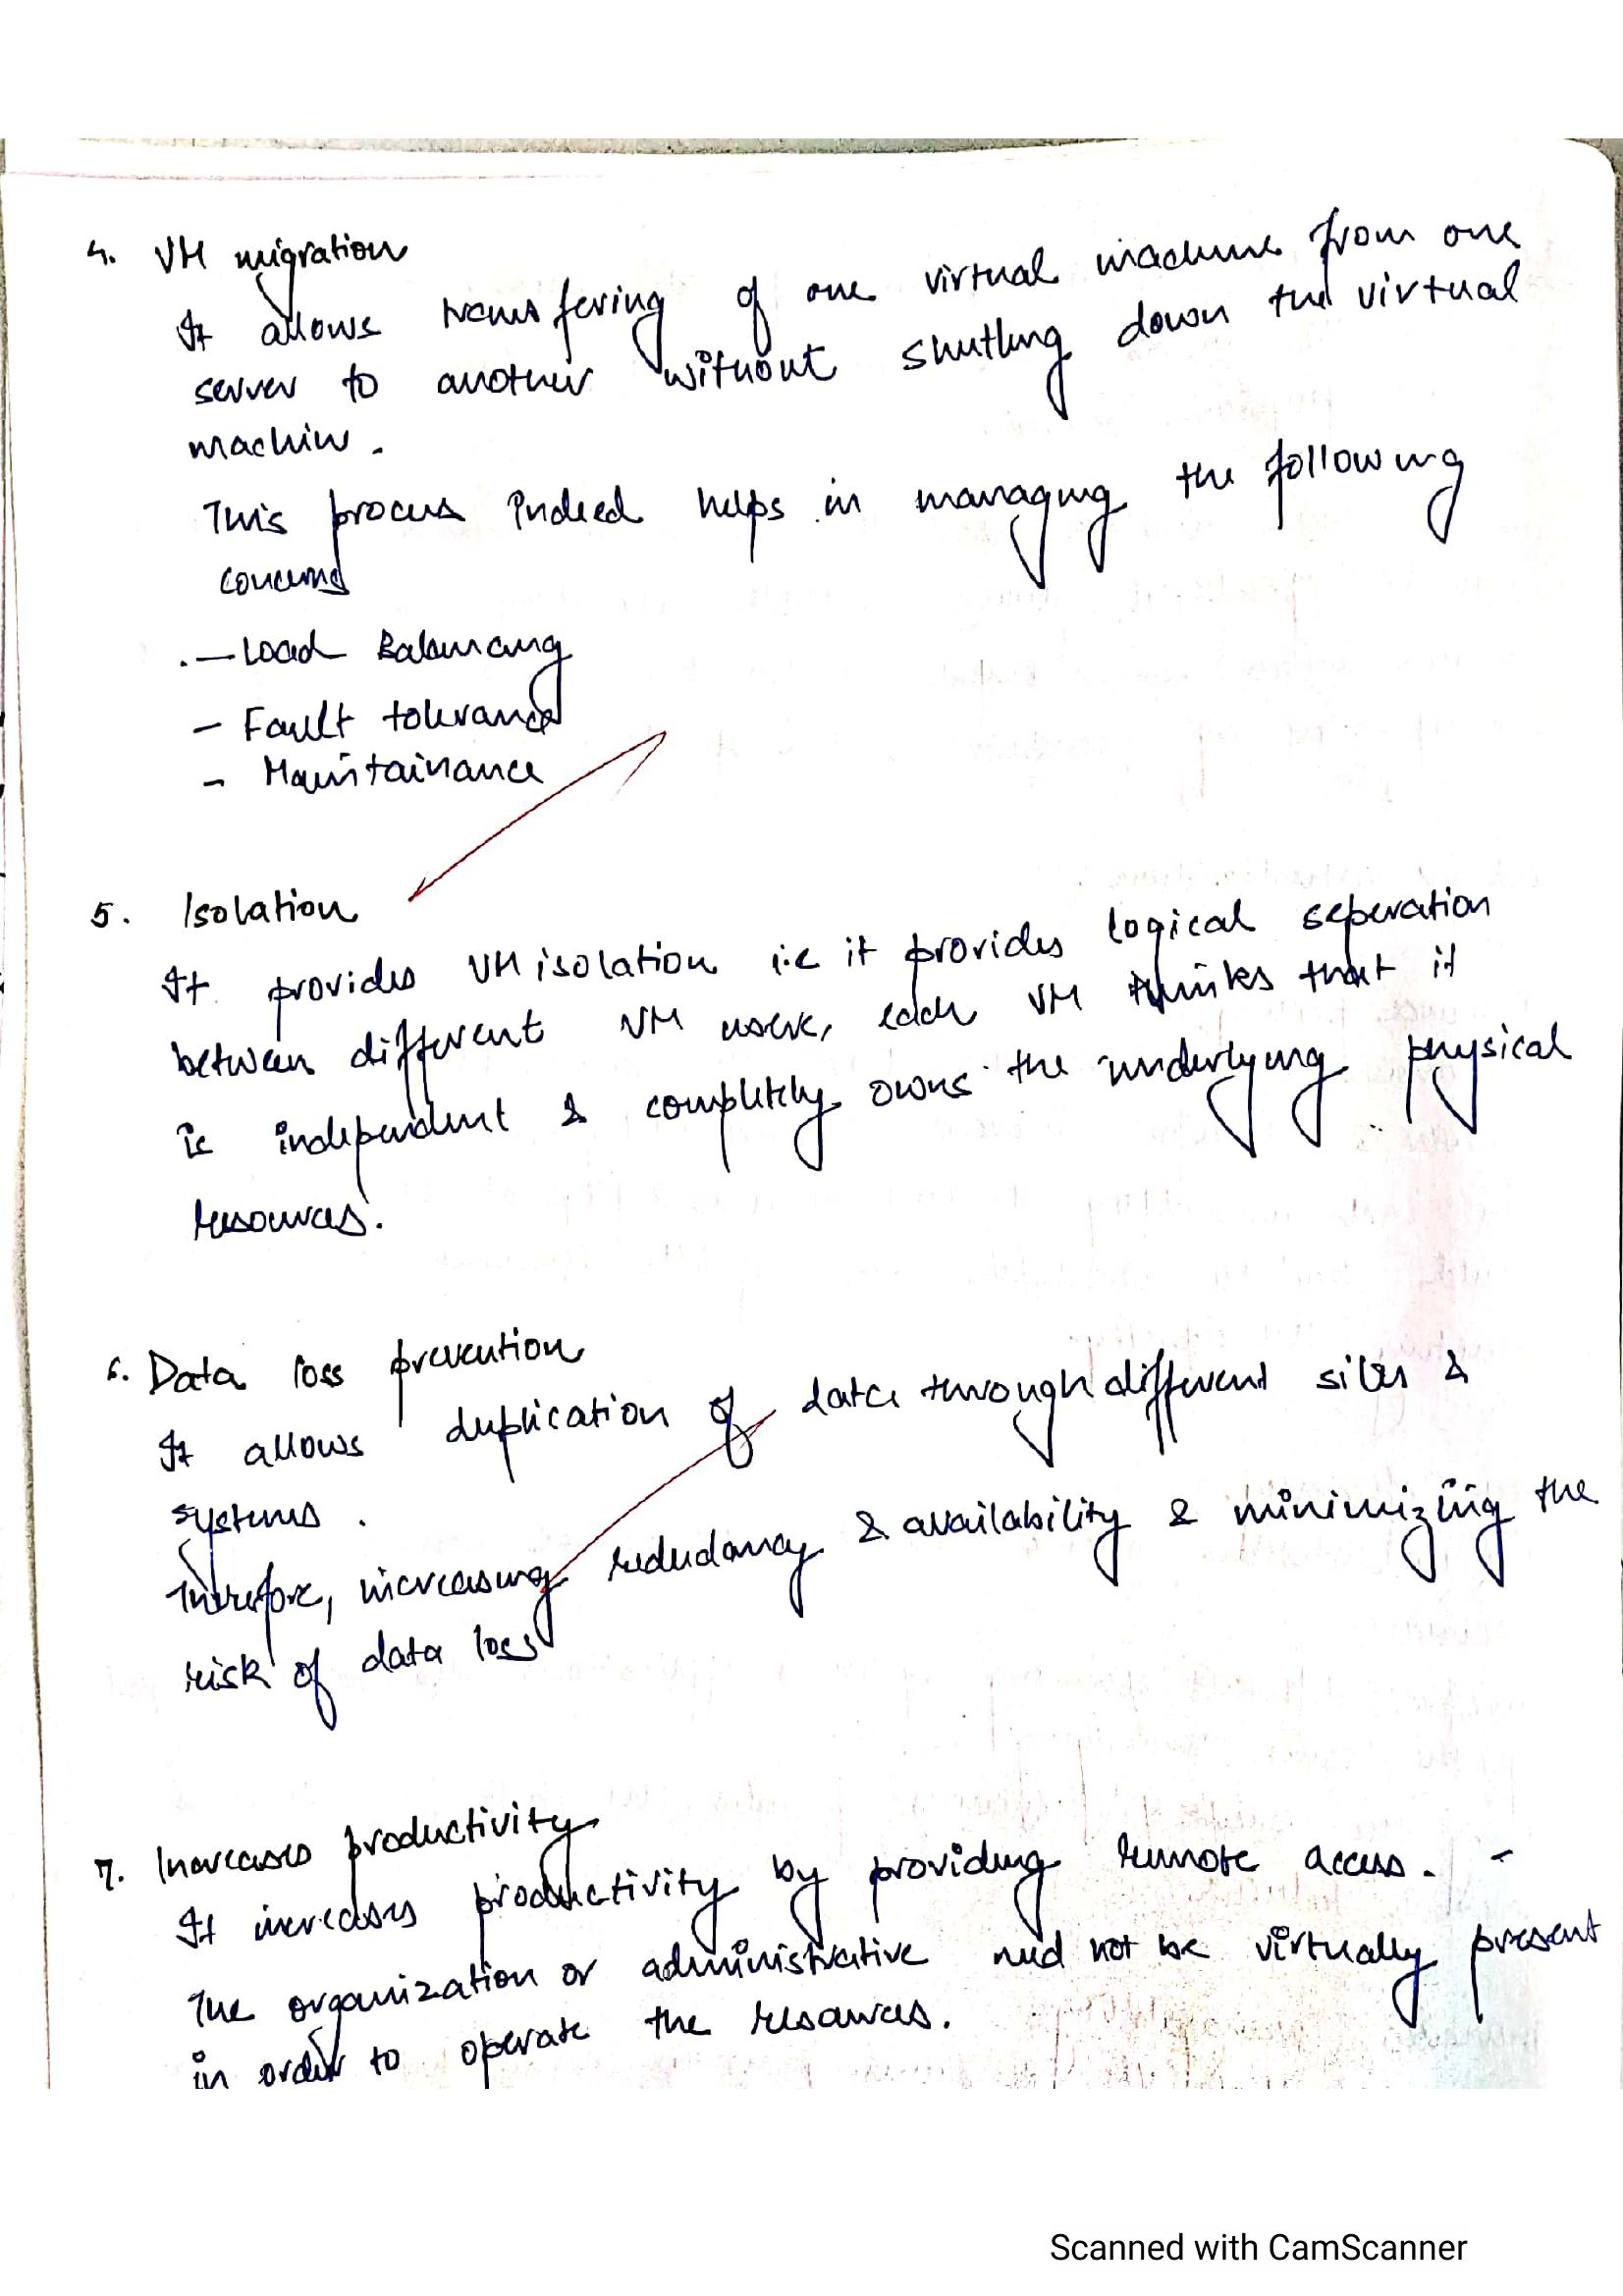 4. VM migration
It allows transfering of one virtual machine from one
server to another without shutting down the virtual
machine.
This process indeed helps in managing the following
concerns
- Load Balancing
- Fault tolerance
- Maintainance
5. Isolation
It provides VM isolation i.e it provides logical seperation
between different VM users, each VM thinks that it
is independent & completely owns the underlying physical
resources.
6. Data loss prevention
It allows duplication of data through different sites &
systems.
Therefore, increasing redudancy & availability & minimizing the
risk of data loss
7. Increases productivity
It increases productivity by providing remote access. -
The organization or administrative need not be virtually present
in order to operate the resources.
Scanned with CamScanner